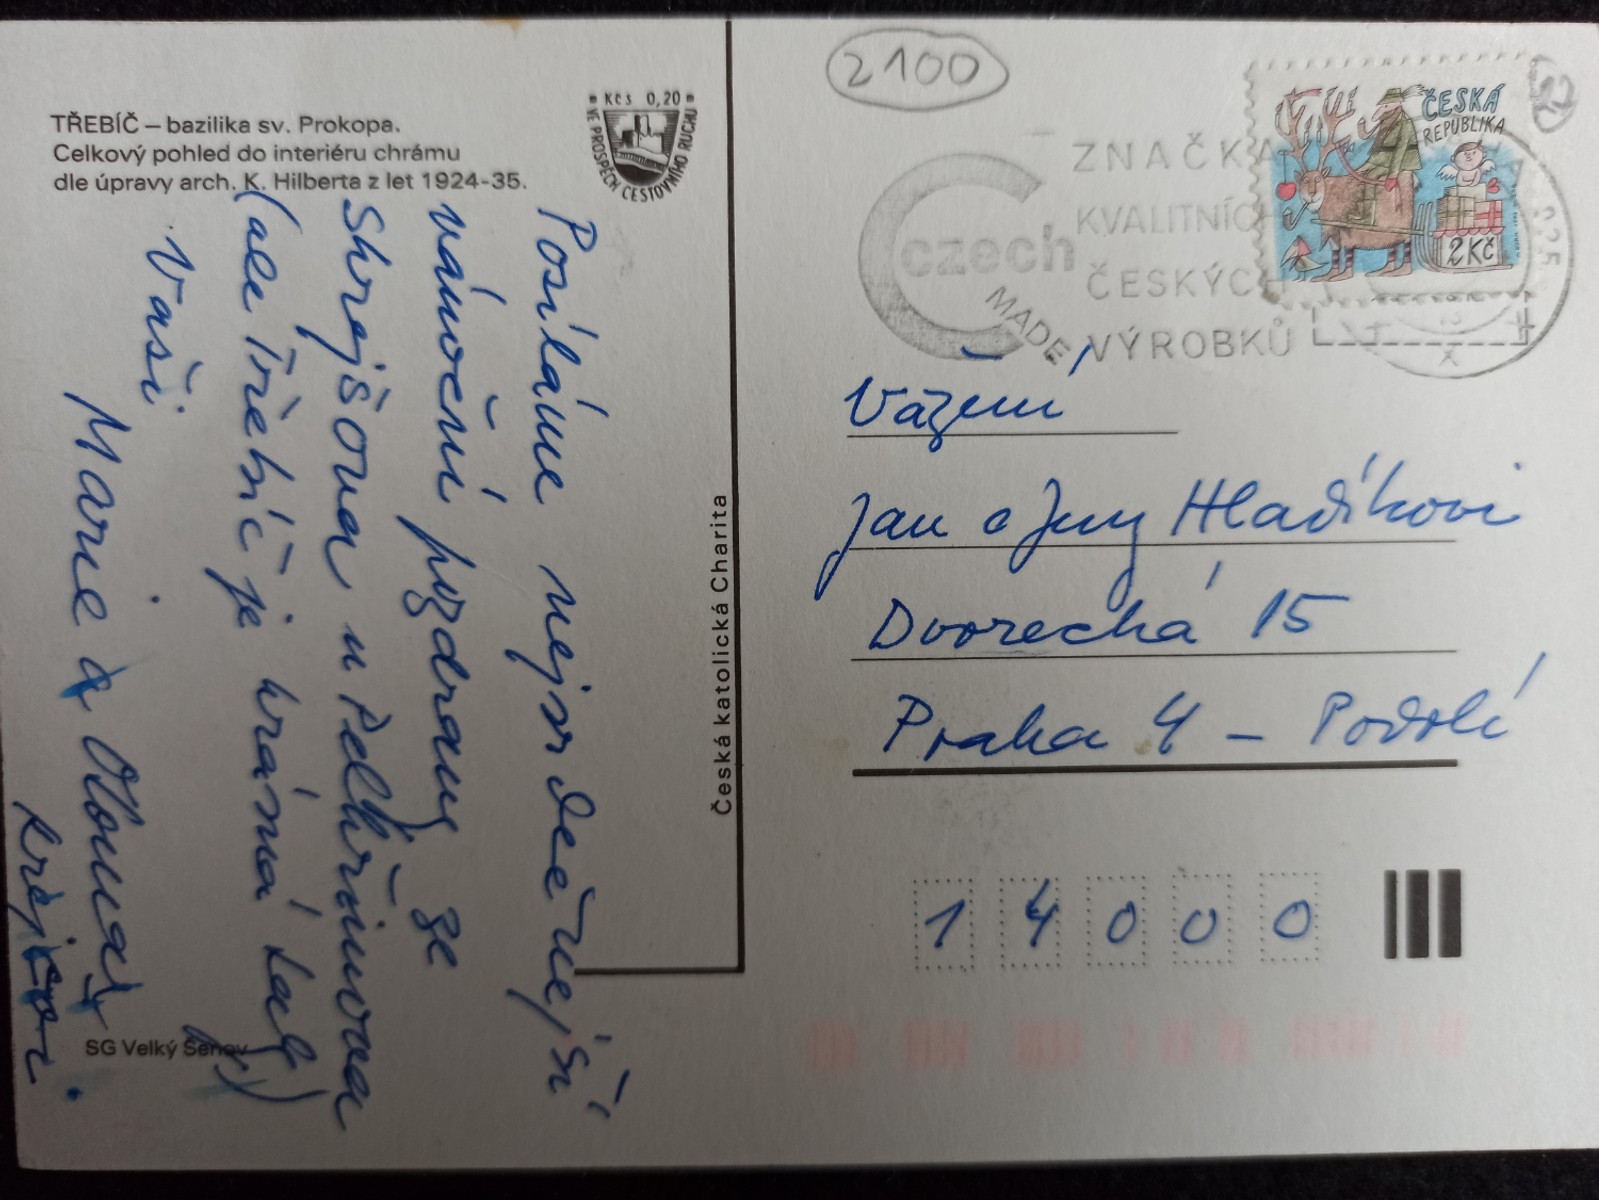 TŘEBÍČ – bazilika sv. Prokopa.
Celkový pohled do interiéru chrámu
dle úpravy arch. K. Hilberta z let 1924-35.
Kčs 0,20
VE PROSPĚCH CESTOVNÍHO RUCHU
Posíláme nejsrdečnější
vánoční pozdravy ze
Skrejšova u Pelhřimova
(ale Třebíč je krásná taky)
Vaši
Marie a
Krejčovi.
Česká katolická Charita
SG Velký Šenov
2100
czech
MADE
ZNAČKA
KVALITNÍC
ČESKÝC
VÝROBKŮ
ČESKÁ
REPUBLIKA
2 KČ
Vážení
Jan a Jury Hladíkovi
Dvorecká 15
Praha 4 – Podolí
14000